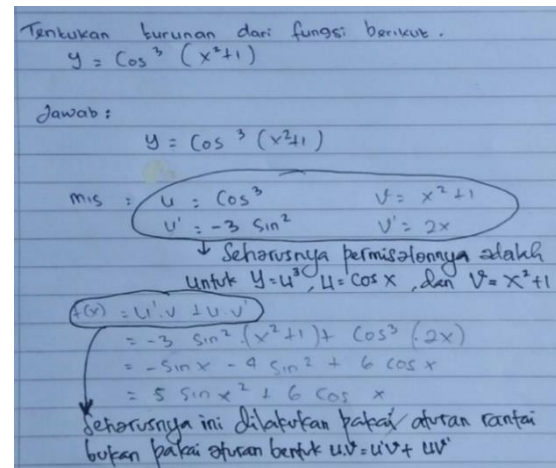 Tentukan turunan dari fungsi berikut.
y = Cos³ (x²+1)
Jawab :
y = Cos³ (x²+1)
mis : u = Cos³ v = x²+1
u' = -3 Sin² v' = 2x
↓ Seharusnya permisalannya adalah
untuk y=u³, u= cos x, dan v= x²+1
f(x) = u'.v + u.v'
= -3 sin².(x²+1)+ Cos³ (.2x)
= -Sin x - 4 Sin² + 6 cos x
= 5 Sin x² + 6 Cos x
Seharusnya ini dilakukan pakai aturan rantai
bukan pakai aturan bentuk u.v = u'v + uv'